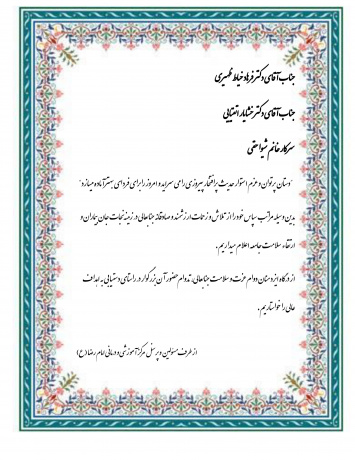 جناب آقای دکتر فرهاد خیاط ظهیری
جناب آقای دکتر خشایار
سرکار خانم شیوا حقی
"دستان پرتوان و عزم استوار حدیث پرافتخار پیروزی را می سراید و امروز را برای فردای بهتر آماده میسازد"
بدین وسیله مراتب سپاس خود را از تلاش و زحمات ارزشمند و صادقانه جنابعالی در زمینه نجات جان بیماران و
ارتقاء سلامت جامعه اعلام میداریم.
از درگاه ایزد منان دوام عزت و سلامت جنابعالی، تداوم حضور آن بزرگوار در راستای دستیابی به اهداف
عالی را خواستاریم.
از طرف مسئولین و پرسنل مرکز آموزشی و درمانی امام رضا (ع)